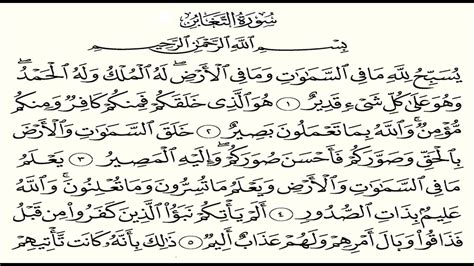 سُورَةُ التَّغَابُنِ
بِسْمِ اللَّهِ الرَّحْمَٰنِ الرَّحِيمِ
يُسَبِّحُ لِلَّهِ مَا فِي السَّمَاوَاتِ وَمَا فِي الْأَرْضِ ۖ لَهُ الْمُلْكُ وَلَهُ الْحَمْدُ ۖ
وَهُوَ عَلَىٰ كُلِّ شَيْءٍ قَدِيرٌ ١ هُوَ الَّذِي خَلَقَكُمْ فَمِنْكُمْ كَافِرٌ وَمِنْكُمْ
مُؤْمِنٌ ۚ وَاللَّهُ بِمَا تَعْمَلُونَ بَصِيرٌ ٢ خَلَقَ السَّمَاوَاتِ وَالْأَرْضَ
بِالْحَقِّ وَصَوَّرَكُمْ فَأَحْسَنَ صُوَرَكُمْ ۖ وَإِلَيْهِ الْمَصِيرُ ٣ يَعْلَمُ
مَا فِي السَّمَاوَاتِ وَالْأَرْضِ وَيَعْلَمُ مَا تُسِرُّونَ وَمَا تُعْلِنُونَ ۚ وَاللَّهُ
عَلِيمٌ بِذَاتِ الصُّدُورِ ٤ أَلَمْ يَأْتِكُمْ نَبَأُ الَّذِينَ كَفَرُوا مِنْ قَبْلُ
فَذَاقُوا وَبَالَ أَمْرِهِمْ وَلَهُمْ عَذَابٌ أَلِيمٌ ٥ ذَٰلِكَ بِأَنَّهُ كَانَتْ تَأْتِيهِمْ